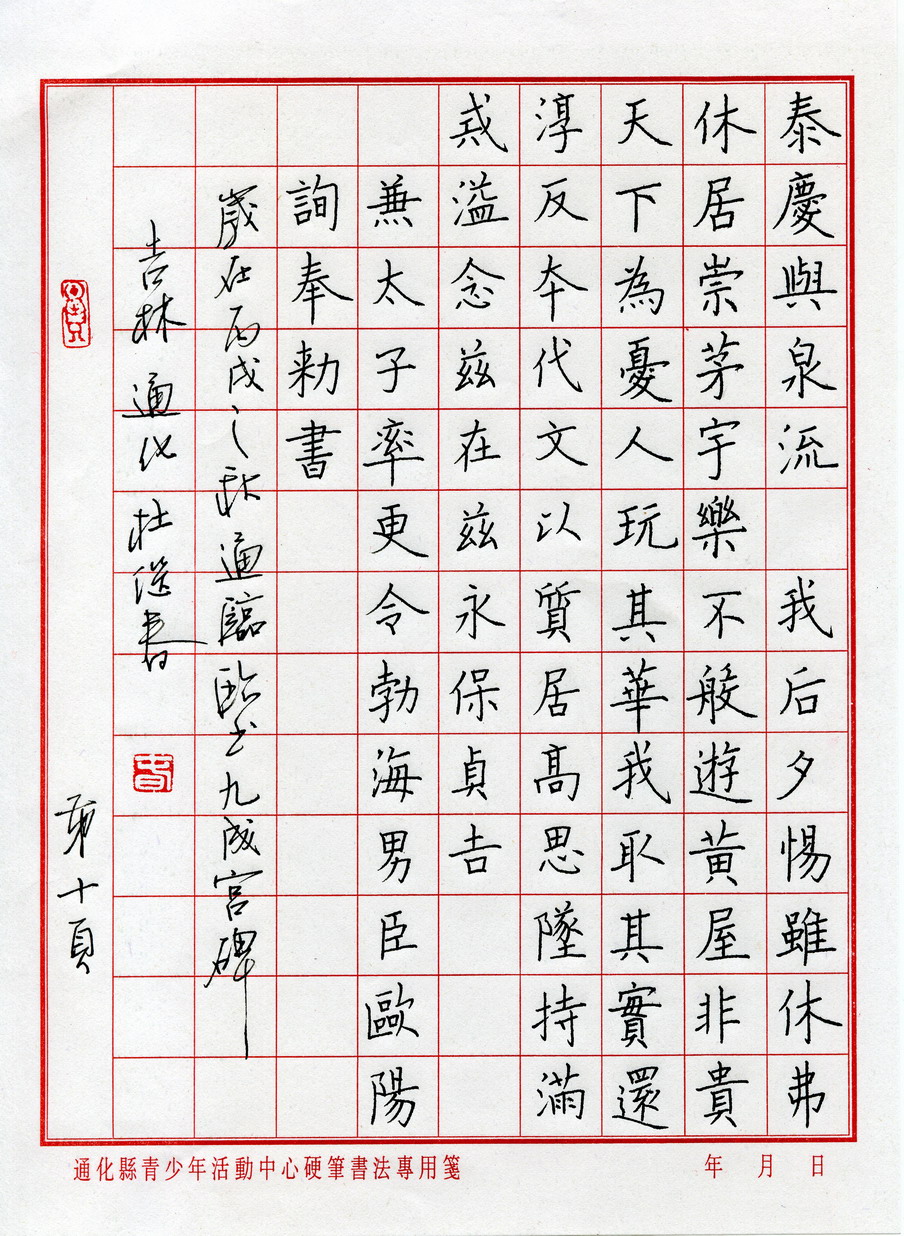 泰慶與泉流 我后夕惕雖休弗
休居崇茅宇樂不般遊黃屋非貴
天下為憂人玩其華我取其實還
淳反本代文以質居高思墜持滿
戒溢念茲在茲永保貞吉
兼太子率更令勃海男臣歐陽
詢奉勑書
歲在丙戌之秋通臨歐書九成宮碑
吉林通化杜延春
第十頁
通化縣青少年活動中心硬筆書法專用箋
年 月 日